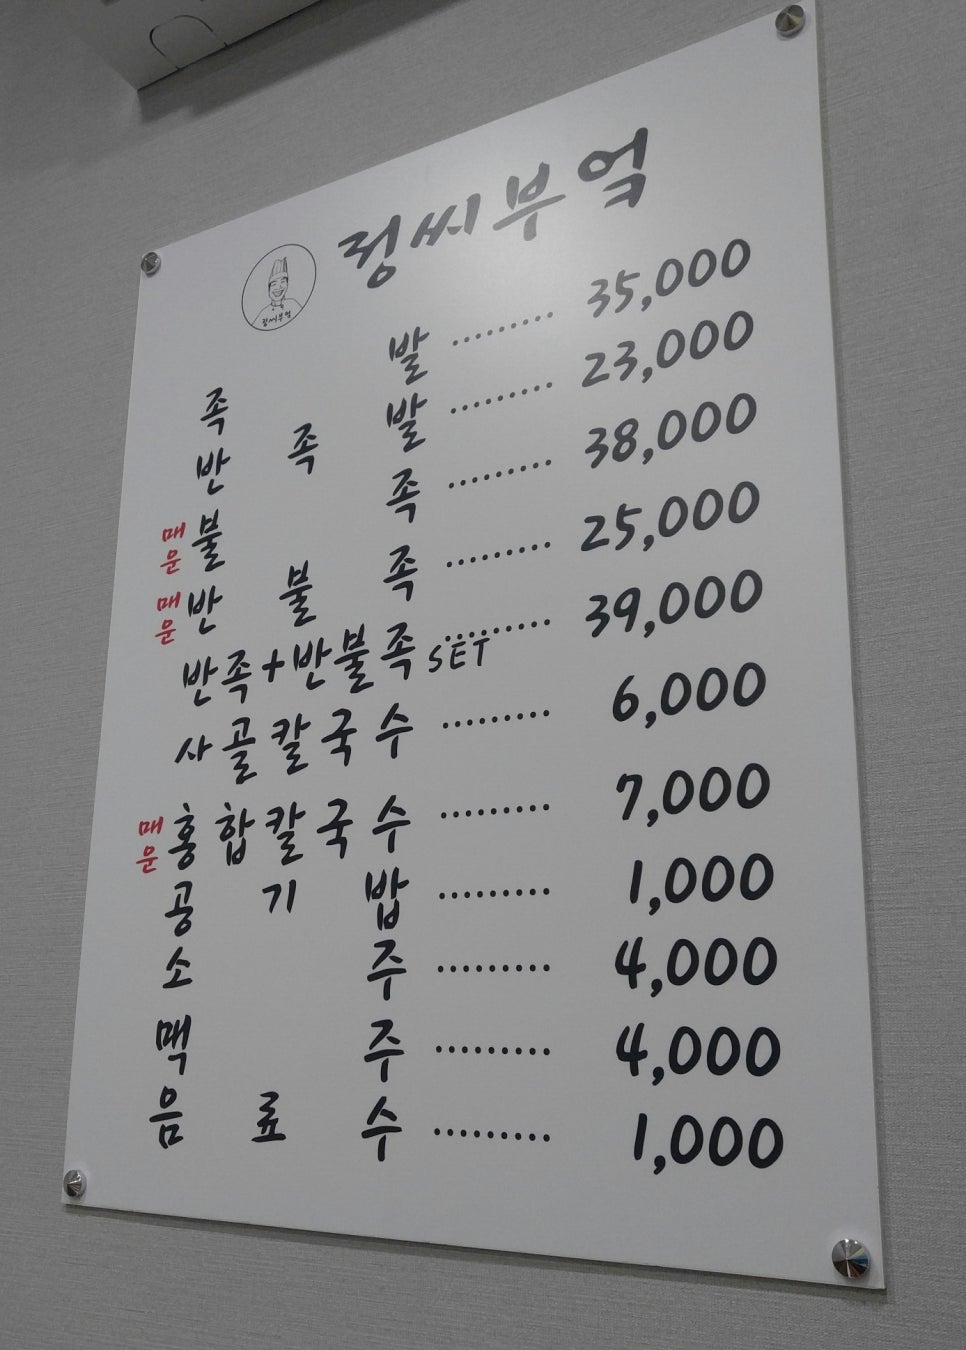 정씨부엌
정씨부엌
족발 ......... 35,000
반족발 ......... 23,000
매운 불족 ......... 38,000
매운 반불족 ......... 25,000
반족+반불족 SET ......... 39,000
사골칼국수 ......... 6,000
매운 홍합칼국수 ......... 7,000
공기밥 ......... 1,000
소주 ......... 4,000
맥주 ......... 4,000
음료수 ......... 1,000